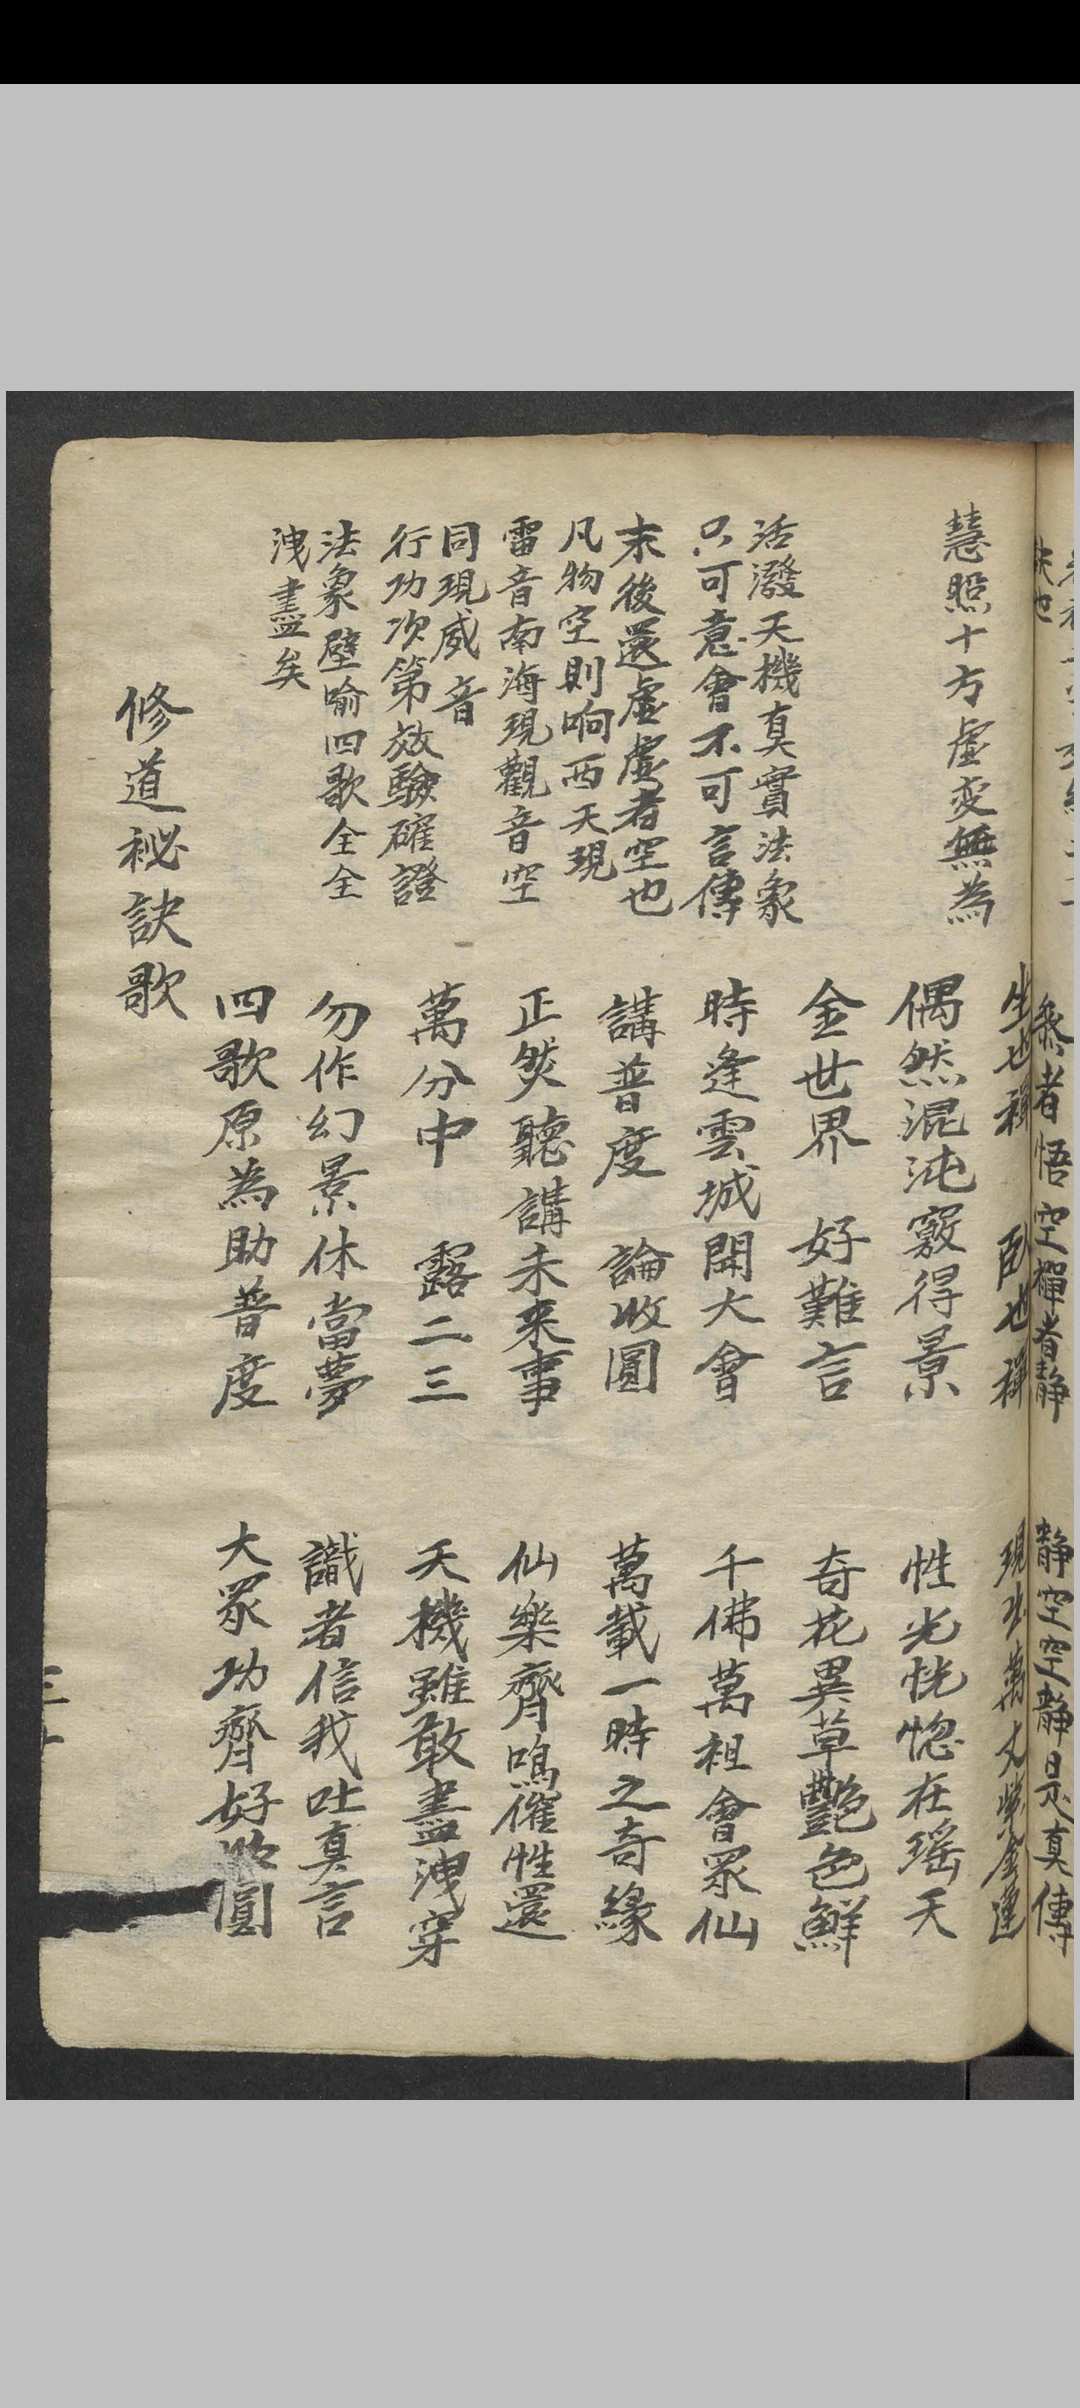 參者悟空禪者靜
靜空空靜是真傳
生也禪 臥也禪
現出萬丈紫金蓮
慧照十方虛変無為
偶然混沌竅得景
性光恍惚在瑤天
金世界 好難言
奇花異草艷色鮮
活潑天機真實法象
只可意會不可言傳
時逢雲城開大會
千佛萬祖會眾仙
末後還虛虛者空也
凡物空則响西天現
講普度 論收圓
萬載一時之奇緣
雷音南海現觀音空
同現威音
正煲聽講未來事
仙樂齊鳴催性還
行功次第效驗確證
萬分中 露二三
天機雖敢盡洩穿
法象壁喻四歌全全
洩盡矣
勿作幻景休當夢
識者信我吐真言
四歌原為助普度
大眾功齊好收圓
修道祕訣歌